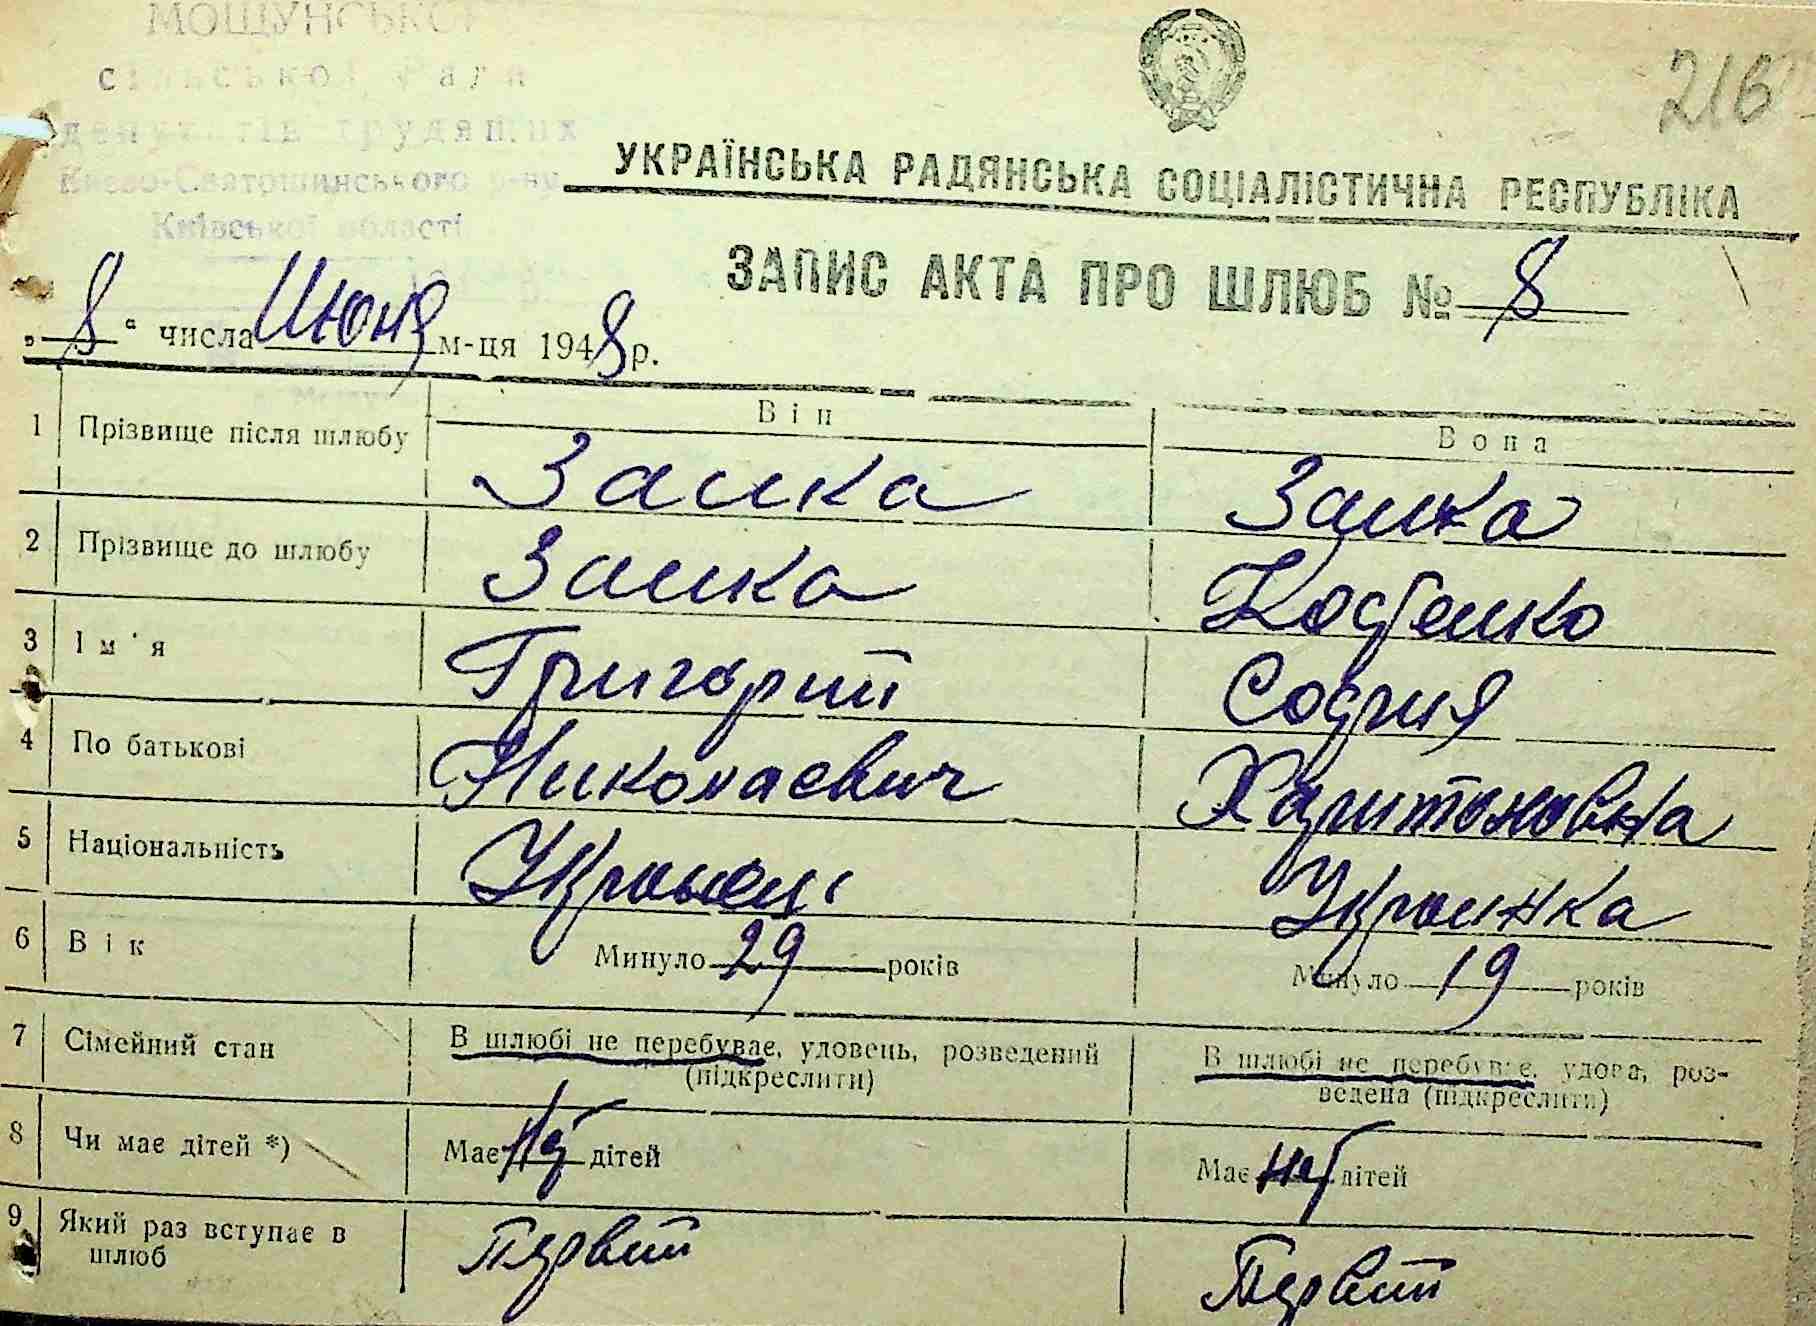 МОЩУНСЬКОЇ
сільської Рада
депутатів трудящих
Києво-Святошинського р-ну
Київської області
216
УКРАЇНСЬКА РАДЯНСЬКА СОЦІАЛІСТИЧНА РЕСПУБЛІКА
ЗАПИС АКТА ПРО ШЛЮБ № 8
„8“ числа Июня м-ця 1948 р.
Він Вона
1 Прізвище після шлюбу Заика Заика
2 Прізвище до шлюбу Заика
3 Ім'я Григорий София
4 По батькові Николаевич Харитоновна
5 Національність Украинец Украинка
6 Вік Минуло 29 років Минуло 19 років
7 Сімейний стан В шлюбі не перебуває, удовець, розведений (підкреслити) В шлюбі не перебуває, удова, роз-
ведена (підкреслити)
8 Чи має дітей *) Має нет дітей Має нет дітей
9 Який раз вступає в Первый Первый
шлюб